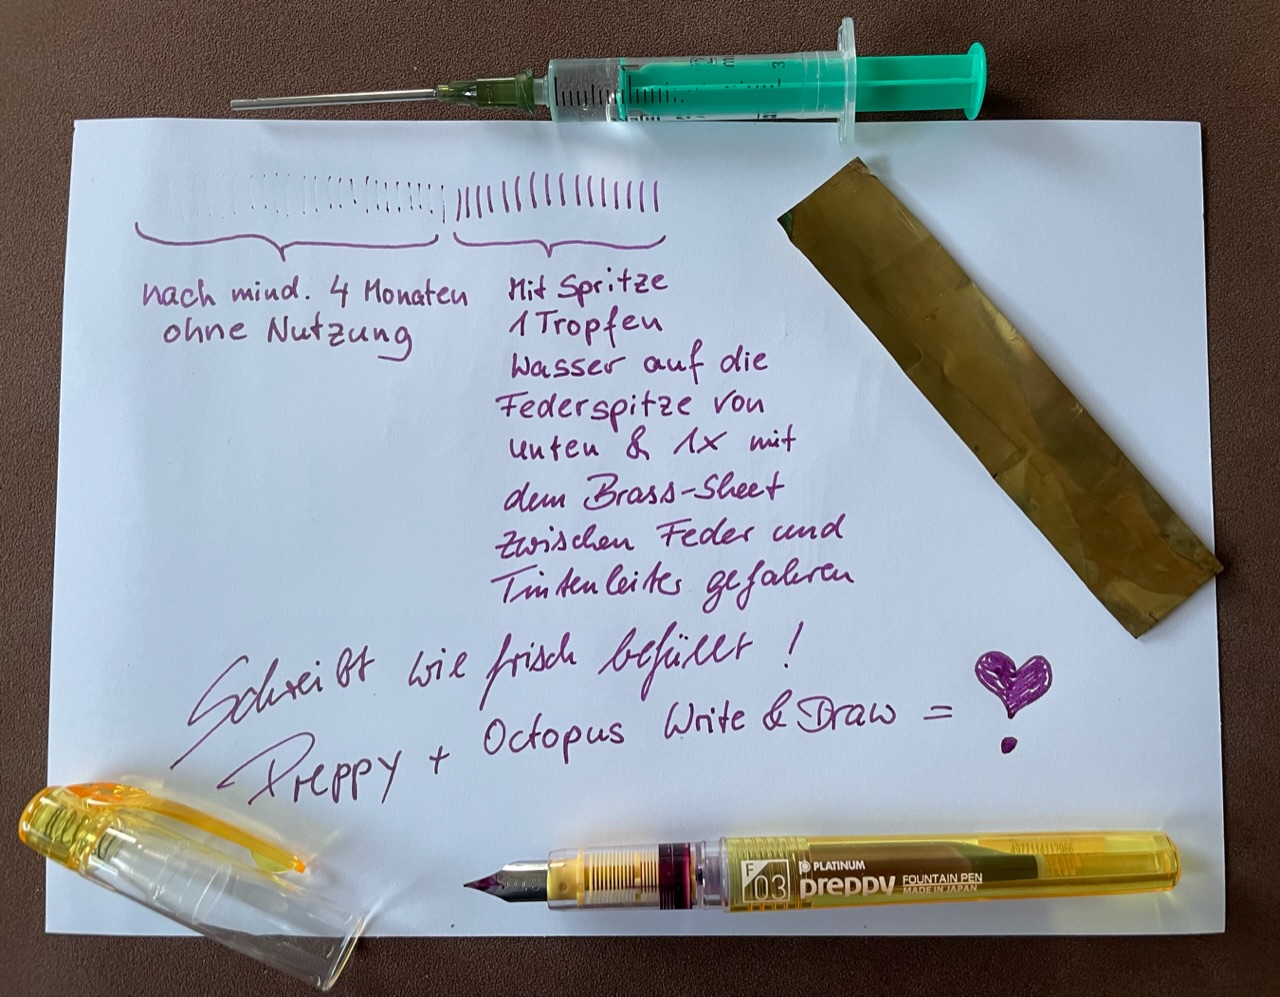 nach mind. 4 Monaten
ohne Nutzung
Mit Spritze
1 Tropfen
Wasser auf die
Federspitze von
unten & 1x mit
dem Brass-Sheet
zwischen Feder und
Tintenleiter gefahren
Schreibt wie frisch befüllt!
Preppy + Octopus Write & Draw =
F
03
PLATINUM
preppy
FOUNTAIN PEN
MADE IN JAPAN
3